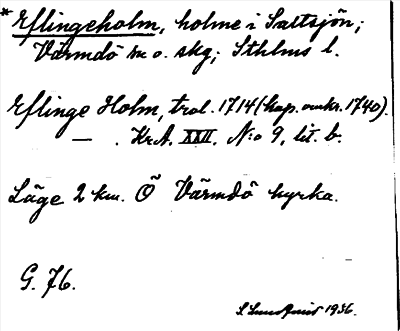 * Eflingeholm, holme i Saltsjön;
Värmdö sn o. skg; Sthlms l.
Eflinge Holm, trol. 1714 (kap. omkr. 1740).
— . Kr.A. XXII. N:o 9, lit. b.
Läge 2 km. Ö Värmdö kyrka.
G. 76.
1936.